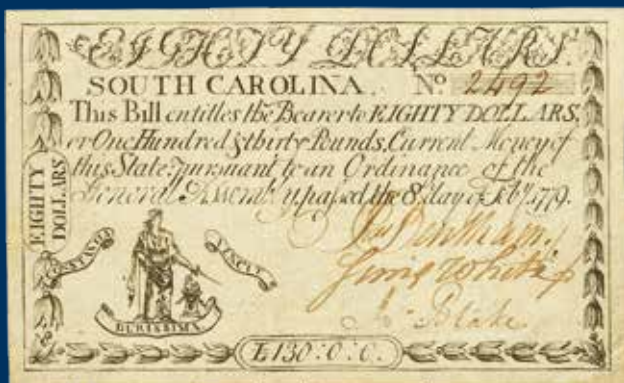 EIGHTY DOLLARS.
SOUTH CAROLINA. No. 2492
This Bill entitles the Bearer to EIGHTY DOLLARS,
or One Hundred & thirty Pounds, Current Money of
this State, pursuant to an Ordinance of the
General Assembly passed the 8 day of Feby. 1779.
EIGHTY
DOLLARS
VINCIT
DURISSIMA
White
Blake
L130:0:0.